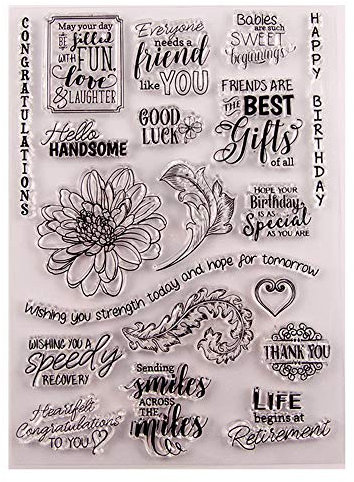 CONGRATULATIONS
May your day
BE filled
WITH FUN,
love
& LAUGHTER
Everyone
needs a
friend
like YOU
Babies
are such
SWEET
beginnings
HAPPY BIRTHDAY
Hello
HANDSOME
GOOD
LUCK
FRIENDS ARE
THE BEST
Gifts
of all
HOPE YOUR
Birthday
IS AS
Special
AS YOU ARE
Wishing you strength today and hope for tomorrow
WISHING YOU A
speedy
RECOVERY
Sending
smiles
ACROSS
THE
miles
THANK YOU
Heartfelt
Congratulations
TO YOU
LIFE
begins at
Retirement